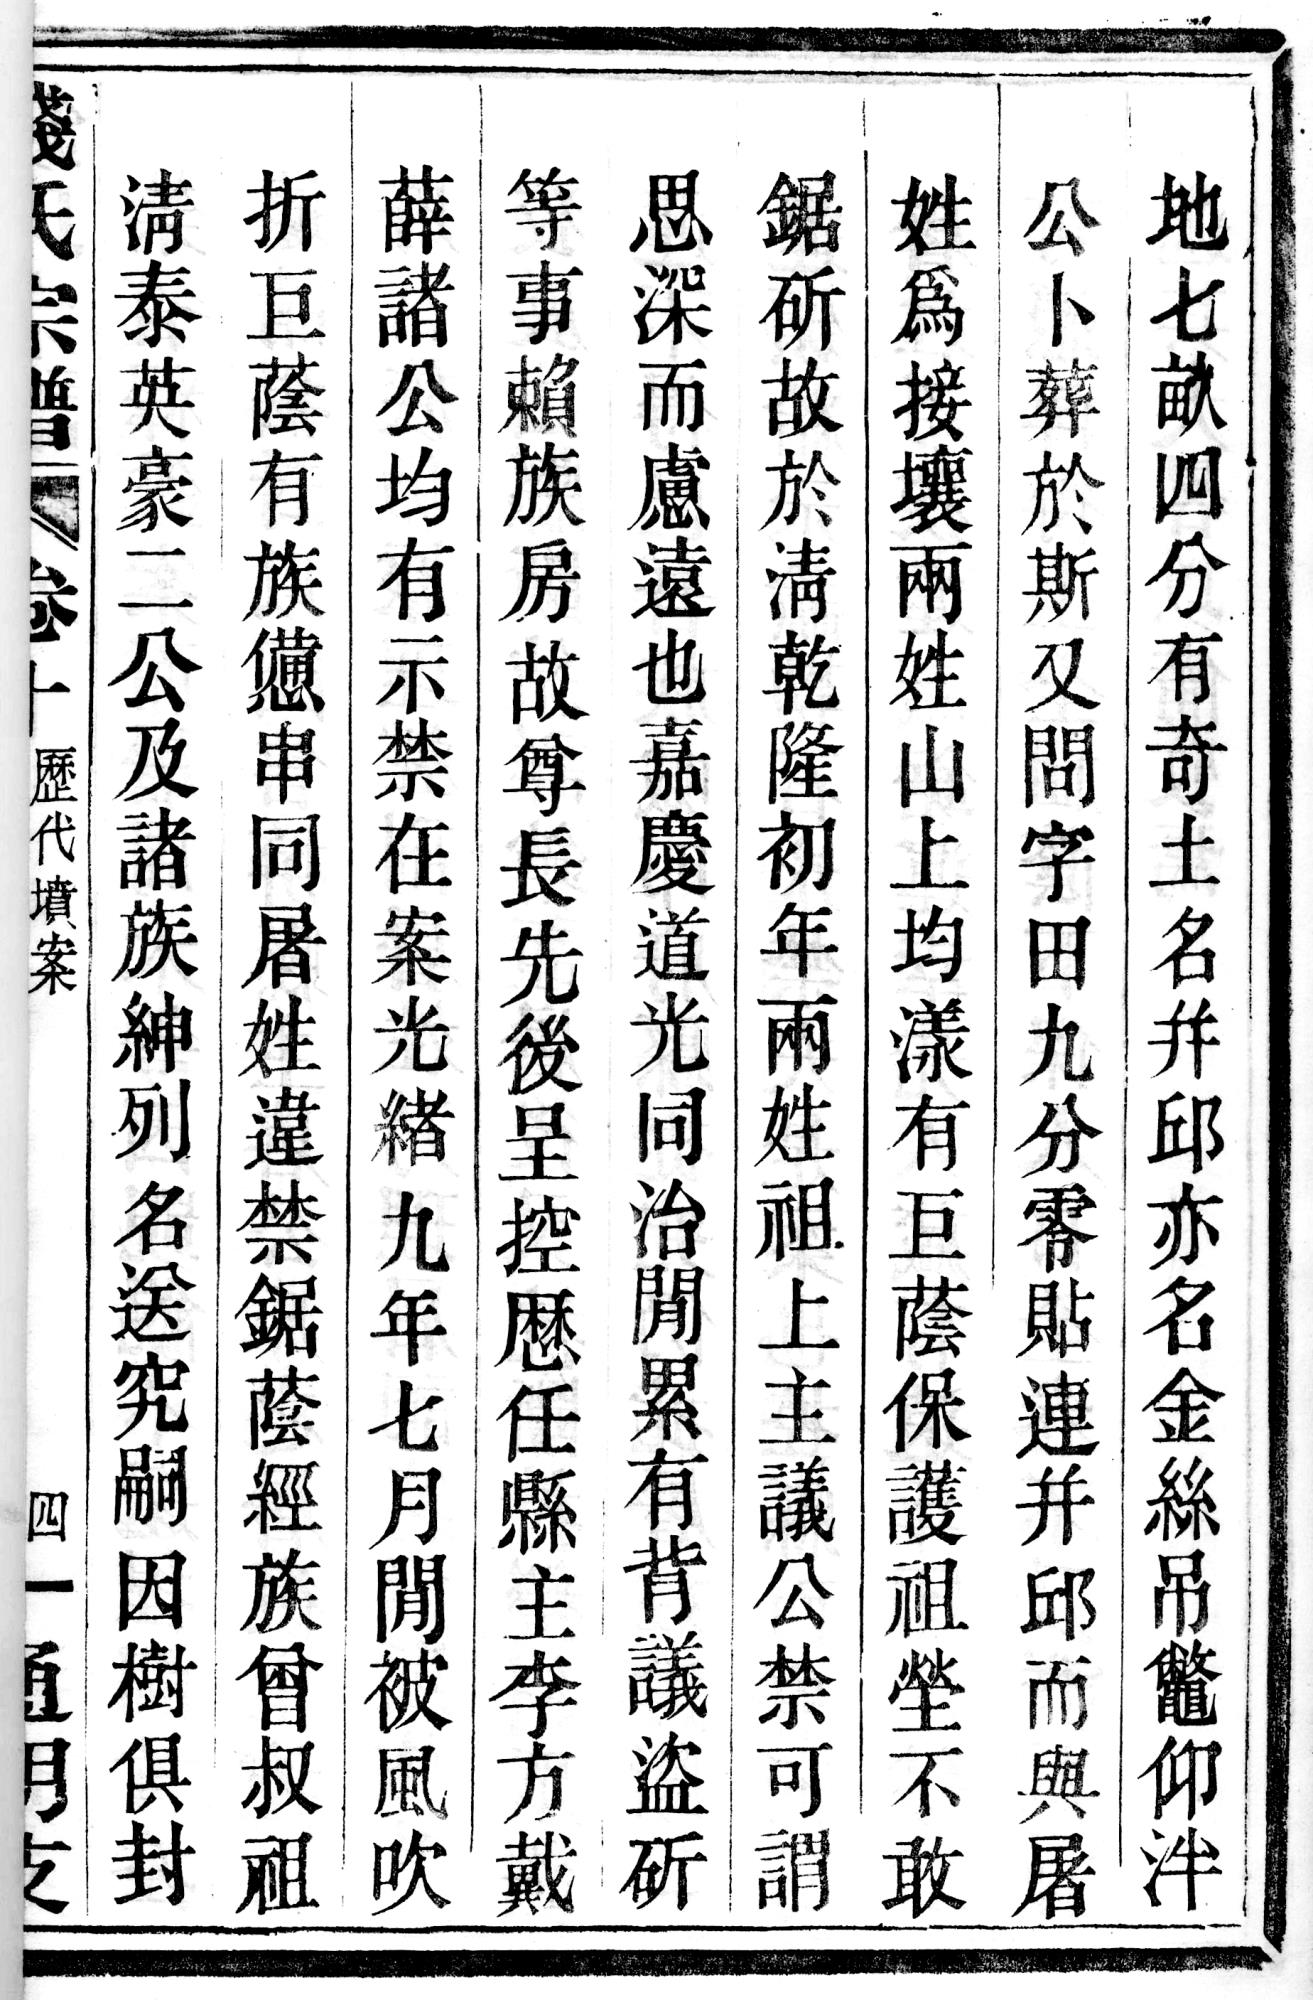 地七畝四分有奇土名幷邱亦名金絲吊鼈仰泮
公卜葬於斯又問字田九分零貼連幷邱而與屠
姓爲接壤兩姓山上均漾有巨蔭保護祖塋不敢
鋸斫故於淸乾隆初年兩姓祖上主議公禁可謂
思深而慮遠也嘉慶道光同治閒累有背議盜斫
等事賴族房故尊長先後呈控歷任縣主李方戴
薛諸公均有示禁在案光緒九年七月閒被風吹
折巨蔭有族憊串同屠姓違禁鋸蔭經族曾叔祖
淸泰英豪二公及諸族紳列名送究嗣因樹俱封
錢氏宗譜 卷十 歷代墳案 四一 通明支